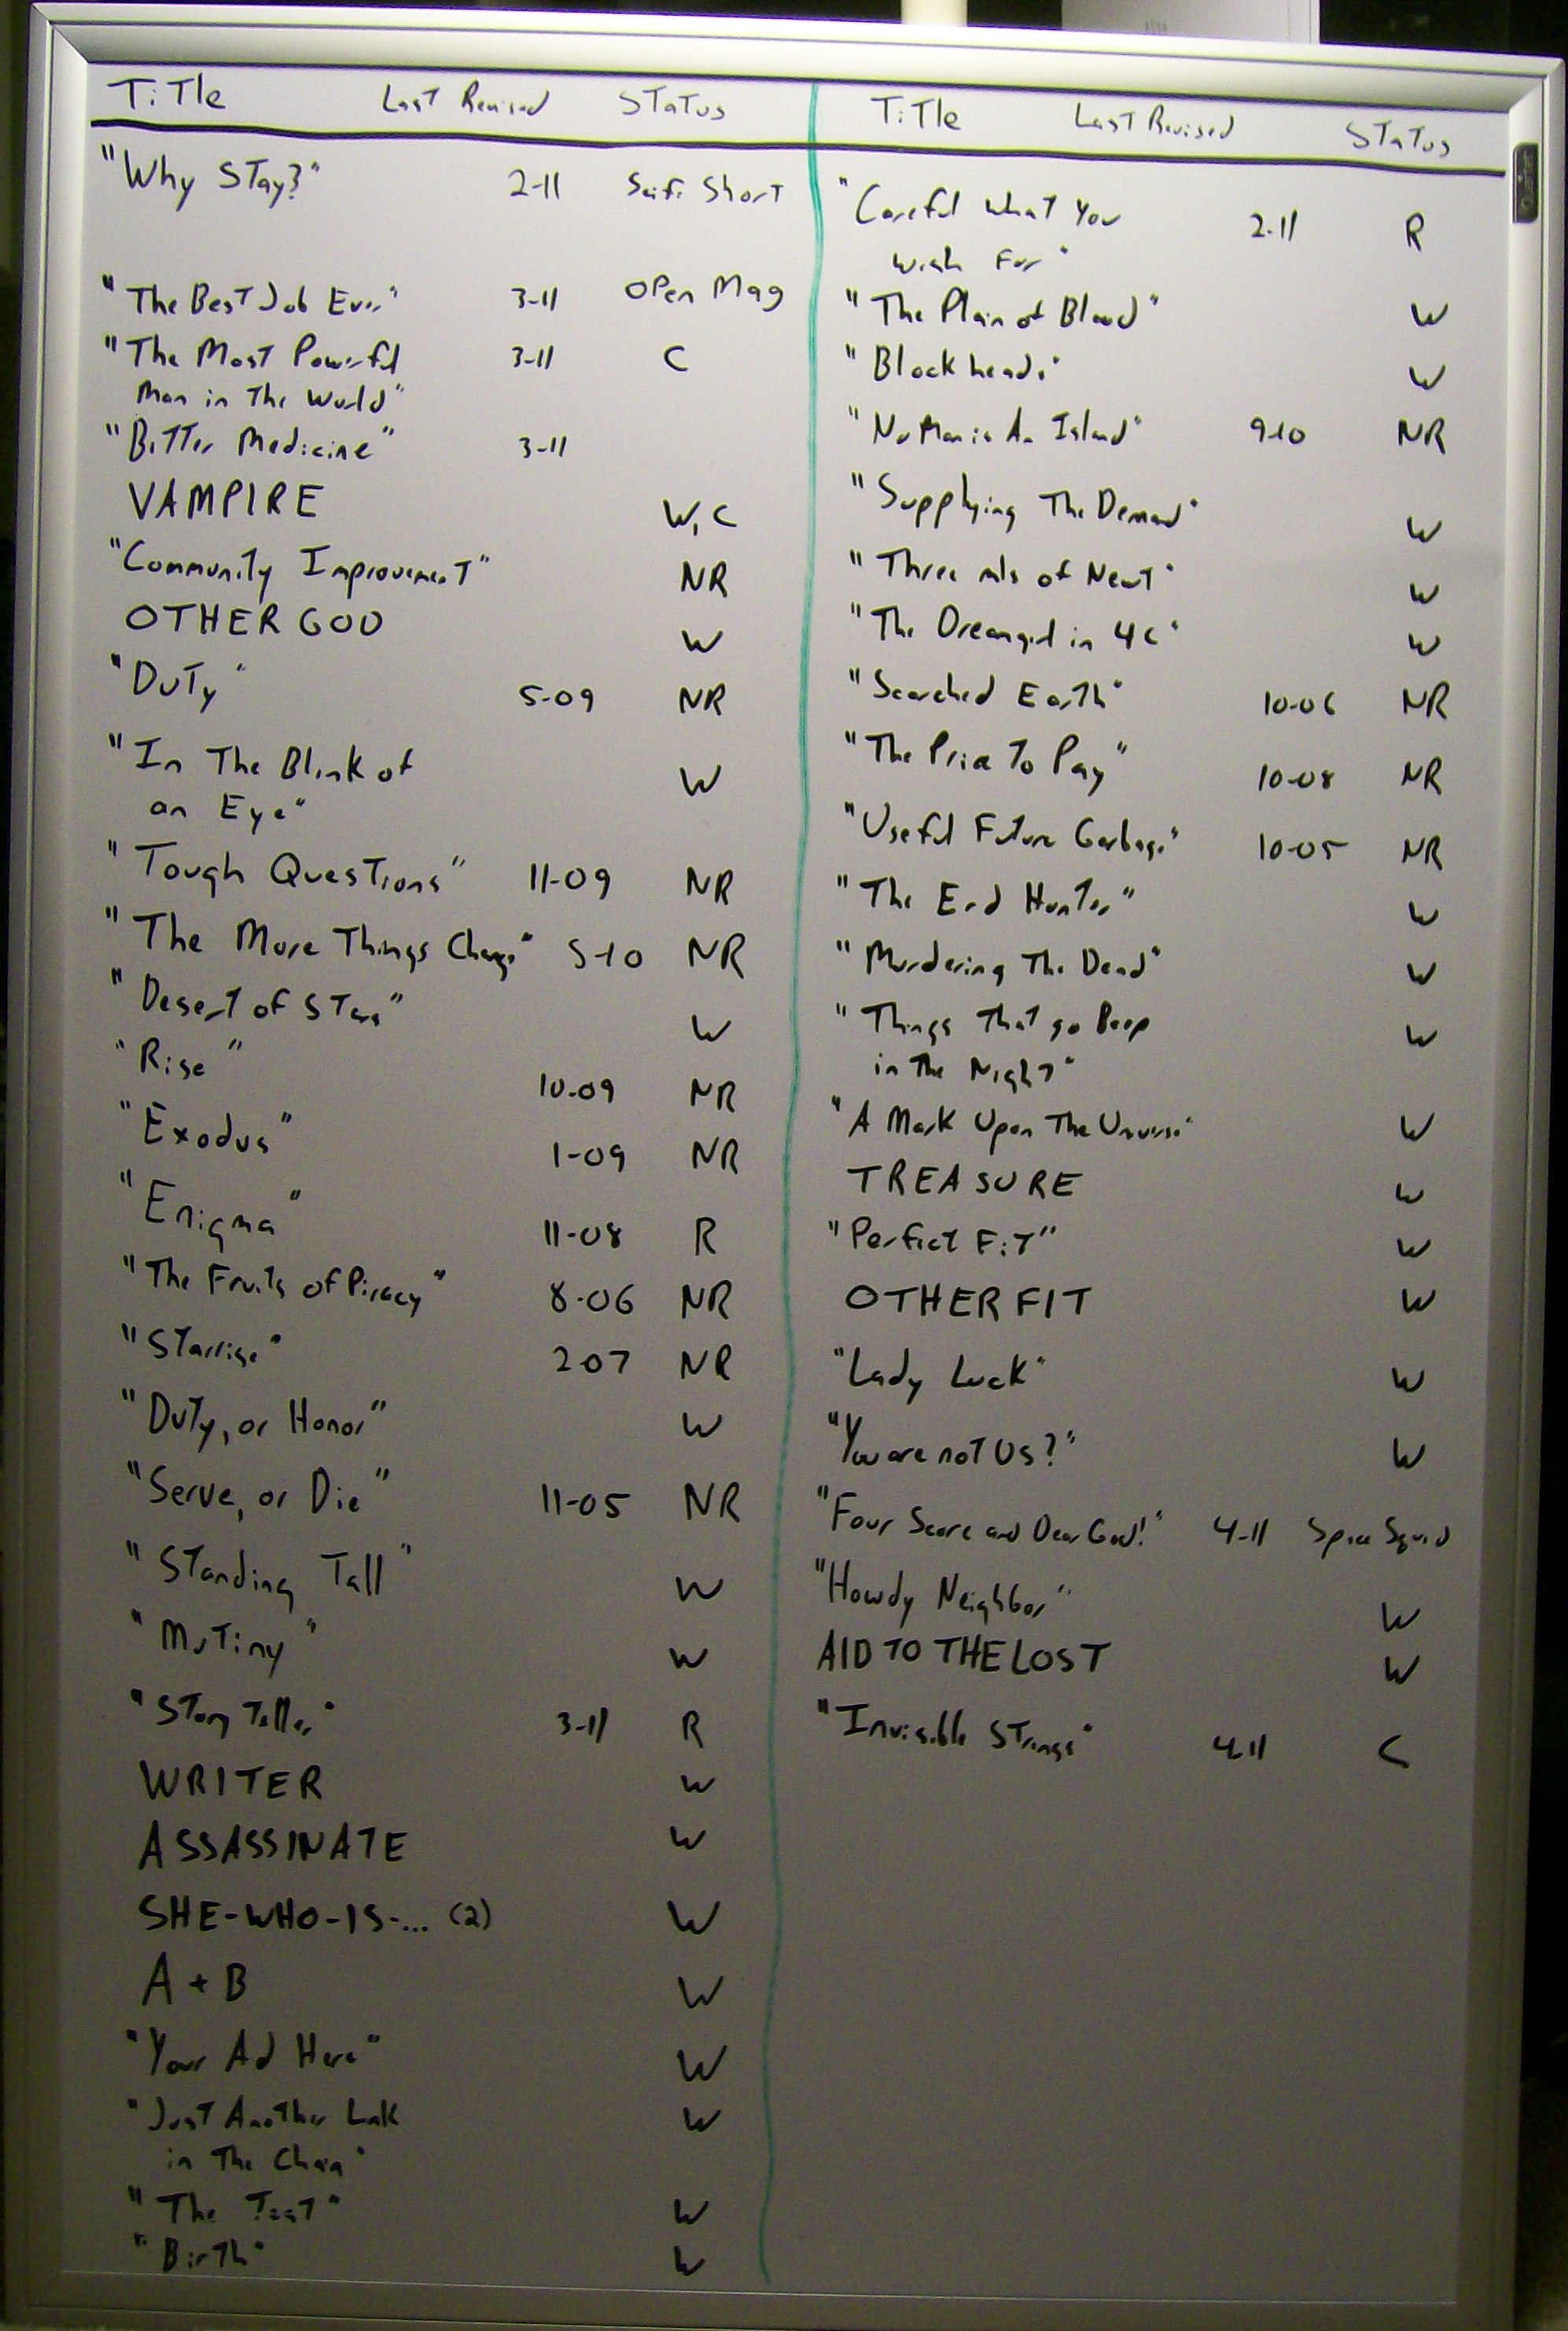 Title Last Revised Status
"Why Stay?" 2-11 Scifi Short
"The Best Job Ever" 3-11 Open Mag
"The Most Powerful 3-11 C
Man in The World"
"Bitter Medicine" 3-11
VAMPIRE W, C
"Community Improvement" NR
OTHER GOD W
"Duty" 5-09 NR
"In The Blink of W
an Eye"
"Tough Questions" 11-09 NR
"The More Things Change" 5-10 NR
"Desert of Stars" W
"Rise" 10-09 NR
"Exodus" 1-09 NR
"Enigma" 11-08 R
"The Fruits of Piracy" 8-06 NR
"Starrise" 2-07 NR
"Duty, or Honor" W
"Serve, or Die" 11-05 NR
"Standing Tall" W
"Mutiny" W
"Story Teller" 3-11 R
WRITER W
ASSASSINATE W
SHE-WHO-IS-... (2) W
A + B W
"Your Ad Here" W
"Just Another Link W
in The Chain"
"The Test" W
"Birth" W
Title Last Revised Status
"Careful What You 2-11 R
Wish For"
"The Plain of Blood" W
"Blockheads" W
"No Man is An Island" 9-10 NR
"Supplying The Demand" W
"Three mls of Newt" W
"The Dreamgirl in 4C" W
"Scorched Earth" 10-06 NR
"The Price To Pay" 10-08 NR
"Useful Future Garbage" 10-05 NR
"The End Hunter" W
"Murdering The Dead" W
"Things that go Beep W
in The Night"
"A Mark Upon The Universe" W
TREASURE W
"Perfect Fit" W
OTHER FIT W
"Lady Luck" W
"You are not Us?" W
"Four Score and Dear God!" 4-11 Space Squid
"Howdy Neighbor" W
AID TO THE LOST W
"Invisible Strings" 4-11 C
Quartet